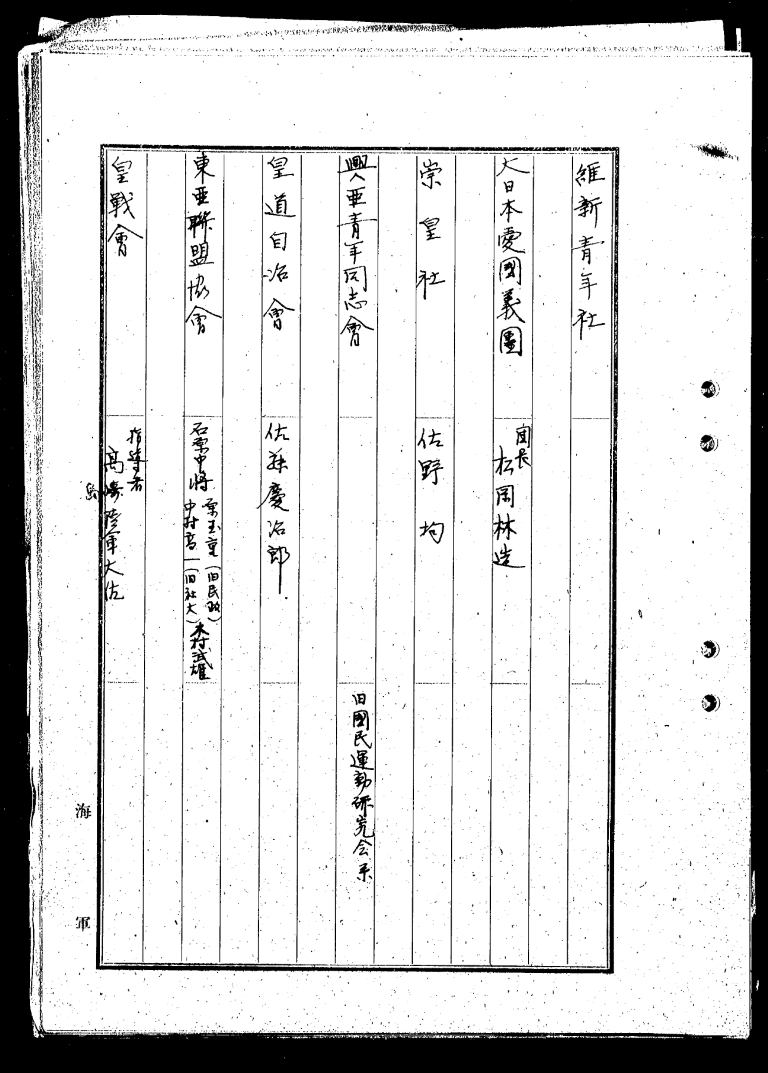 維新青年社
大日本愛國義團
團長
松岡林造
崇皇社
佐野均
興亜青年同志會
旧國民運動研究会系
皇道自治會
佐孫慶治郎
東亜聯盟協會
石原中將
栗玉重(旧民政)
中村高一(旧社大)
木村武雄
皇戰會
指導者
高嶋陸軍大佐
島
海軍